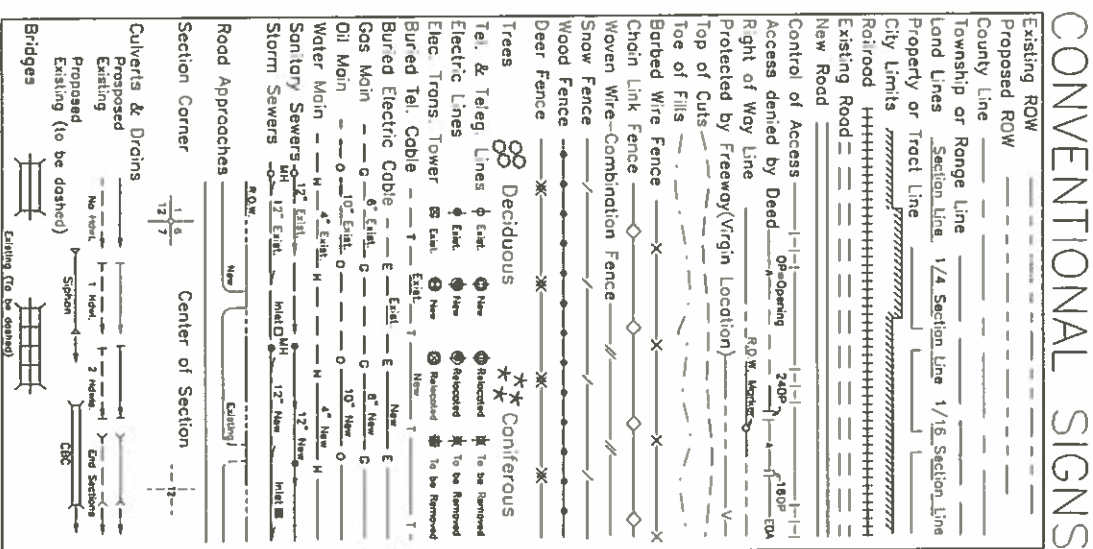 CONVENTIONAL SIGNS
Existing ROW
Proposed ROW
County Line
Township or Range Line
Land Lines Section Line 1/4 Section Line 1/16 Section Line
Property or Tract Line
City Limits
Railroad
Existing Road
New Road
Control of Access
OP=Opening 24OP 16OP
Access denied by Deed A A EOA
Right of Way Line R.O.W. Marker
Protected by Freeway(Virgin Location) V
Top of Cuts
Toe of Fills
Barbed Wire Fence X X X X
Chain Link Fence
Woven Wire-Combination Fence
Snow Fence
Wood Fence
Deer Fence
Trees Deciduous Coniferous
Tel. & Teleg. Lines Exist. New Relocated To be Removed
Electric Lines Exist. New Relocated To be Removed
Elec. Trans. Tower Exist. New Relocated To be Removed
Buried Tel. Cable T Exist. T New T T
Buried Electric Cable E Exist. E New E
Gas Main G 6" Exist. G G 6" New G
Oil Main O 10" Exist. O O 10" New O
Water Main W 4" Exist. W W 4" New W
Sanitary Sewers 12" Exist. 12" New
Storm Sewers MH 12" Exist. Inlet MH 12" New Inlet
Road Approaches R.O.W. New Existing
Section Corner 1 6 12 7 Center of Section 12
Culverts & Drains
Prosposed
Existing
No Hdwl. 1 Hdwl. 2 Hdwls. End Sections
Proposed
Existing (to be dashed)
Siphon CBC
Bridges
Existing (To be dashed)